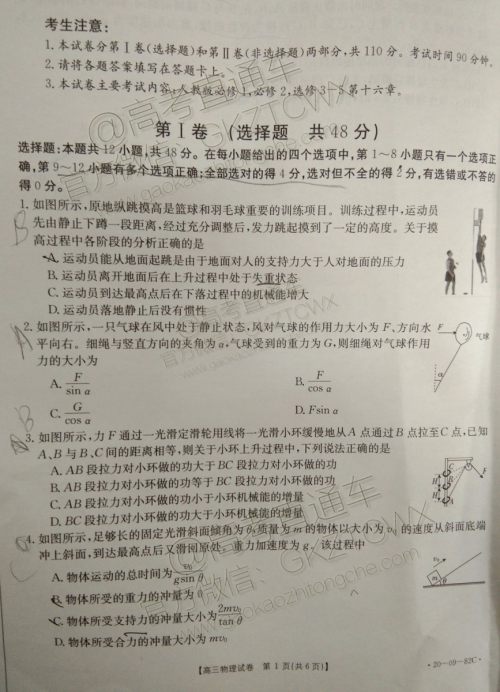 考生注意:
1. 本试卷分第Ⅰ卷(选择题)和第Ⅱ卷(非选择题)两部分,共110分。考试时间90分钟。
2. 请将各题答案填写在答题卡上。
3. 本试卷主要考试内容:人教版必修1,必修2,选修3-5第十六章。
第Ⅰ卷 (选择题 共48分)
选择题:本题共12小题,共48分。在每小题给出的四个选项中,第1~8小题只有一个选项正
确,第9~12小题有多个选项正确;全部选对的得4分,选对但不全的得2分,有选错或不答的
得0分。
1. 如图所示,原地纵跳摸高是篮球和羽毛球重要的训练项目。训练过程中,运动员
先由静止下蹲一段距离,经过充分调整后,发力跳起摸到了一定的高度。关于摸
高过程中各阶段的分析正确的是
B
A. 运动员能从地面起跳是由于地面对人的支持力大于人对地面的压力
B. 运动员离开地面后在上升过程中处于失重状态
C. 运动员到达最高点后在下落过程中的机械能增大
D. 运动员落地静止后没有惯性
2. 如图所示,一只气球在风中处于静止状态,风对气球的作用力大小为F,方向水
平向右。细绳与竖直方向的夹角为α,气球受到的重力为G,则细绳对气球作用
力的大小为
A
F 气球
α
A. F/sin α B. F/cos α
C. G/cos α D. Fsin α
B
3. 如图所示,力F通过一光滑定滑轮用线将一光滑小环缓慢地从A点通过B点拉至C点,已知
A、B与B、C间的距离相等,则关于小环上升过程中,下列说法正确的是
A. AB段拉力对小环做的功大于BC段拉力对小环做的功
B. AB段拉力对小环做的功等于BC段拉力对小环做的功
C. AB段拉力对小环做的功小于小环机械能的增量
D. BC段拉力对小环做的功大于小环机械能的增量
C
4. 如图所示,足够长的固定光滑斜面倾角为θ,质量为m的物体以大小为v₀的速度从斜面底端
冲上斜面,到达最高点后又滑回原处。重力加速度为g。该过程中
A. 物体运动的总时间为 v₀/gsin θ
B. 物体所受的重力的冲量为0
C. 物体所受支持力的冲量大小为 2mv₀/tan θ
D. 物体所受合力的冲量大小为mv₀
v₀
m
θ
【高三物理试卷 第1页(共6页)】
·20-09-82C·
@高考直通车
官方微信:GKZTCWX
www.gaokaozhitongche.com